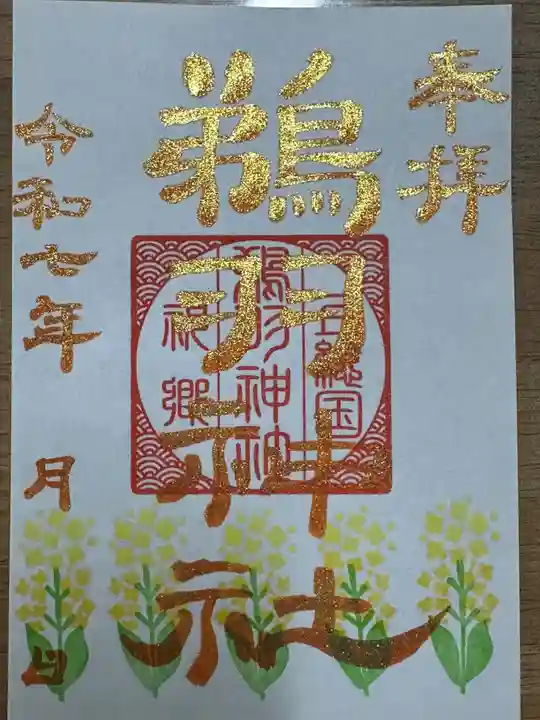 奉拝
鵜羽神社
上総国
鵜羽神社
祖郷
令和七年 月 日